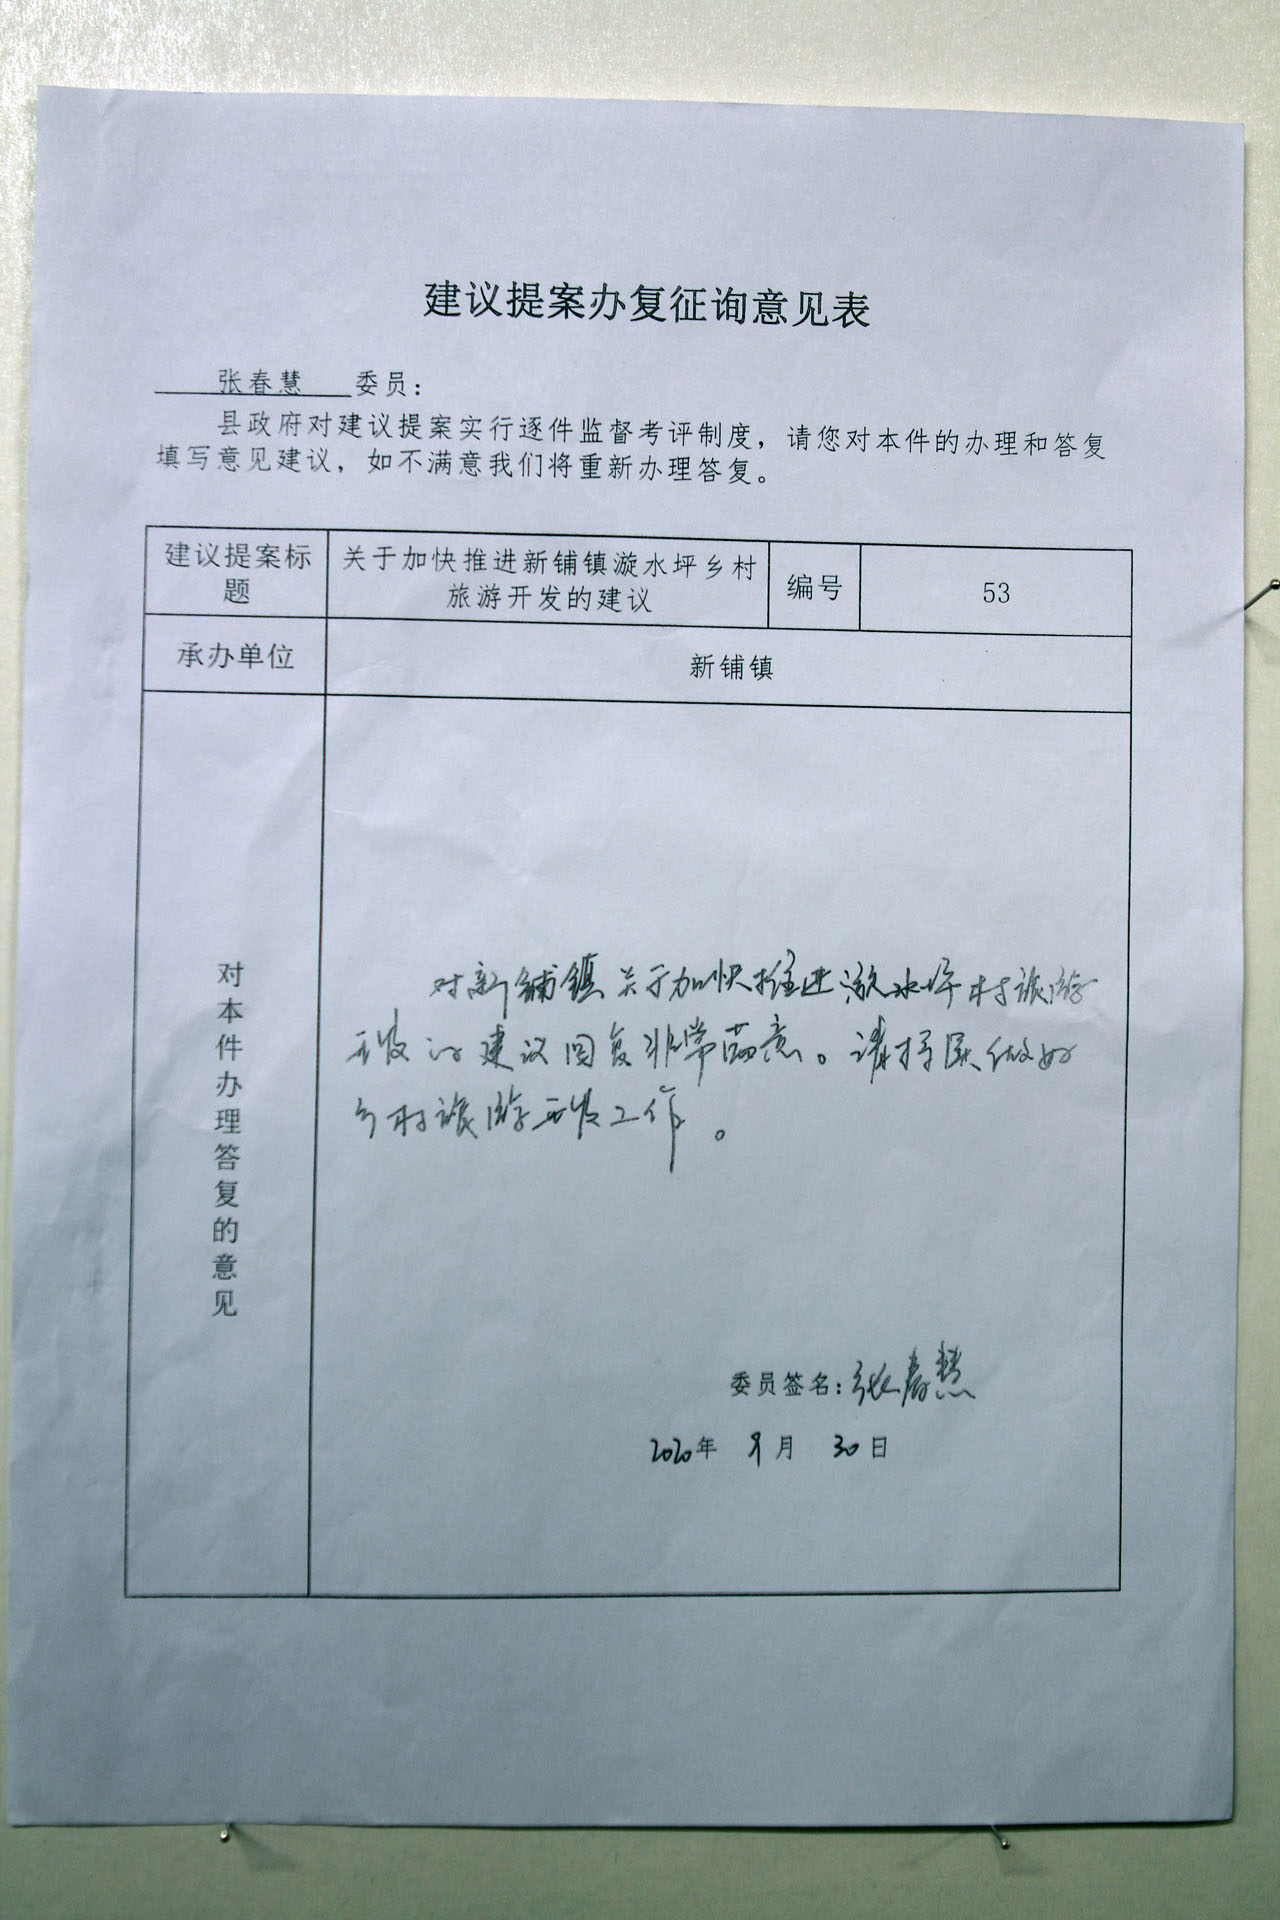 建议提案办复征询意见表
张春慧 委员：
县政府对建议提案实行逐件监督考评制度，请您对本件的办理和答复
填写意见建议，如不满意我们将重新办理答复。
建议提案标
题
关于加快推进新铺镇漩水坪乡村
旅游开发的建议
编号
53
承办单位
新铺镇
对本件办理答复的意见
对新铺镇关于加快推进漩水坪村旅游
开发的建议回复非常满意。请持续做好
乡村旅游开发工作。
委员签名：张春慧
2020年 9月 30日